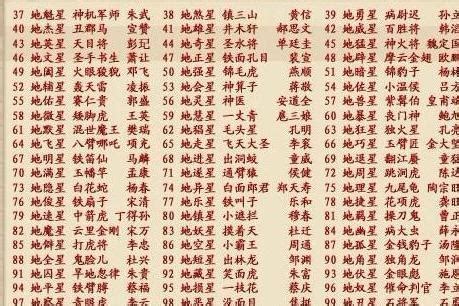 37 地魁星 神机军师 朱武 38 地煞星 镇三山 黄信 39 地勇星 病尉迟 孙立
40 地杰星 丑郡马 宣赞 41 地雄星 井木犴 郝思文 42 地威星 百胜将 韩滔
43 地英星 天目将 彭玘 44 地奇星 圣水将 单廷圭 45 地猛星 神火将 魏定国
46 地文星 圣手书生 萧让 47 地正星 铁面孔目 裴宣 48 地辟星 摩云金翅 欧鹏
49 地阖星 火眼狻猊 邓飞 50 地强星 锦毛虎 燕顺 51 地暗星 锦豹子 杨林
52 地辅星 轰天雷 凌振 53 地会星 神算子 蒋敬 54 地佐星 小温侯 吕方
55 地佑星 赛仁贵 郭盛 56 地灵星 神医 安道全 57 地兽星 紫髯伯 皇甫端
58 地微星 矮脚虎 王英 59 地慧星 一丈青 扈三娘 60 地暴星 丧门神 鲍旭
61 地默星 混世魔王 樊瑞 62 地猖星 毛头星 孔明 63 地狂星 独火星 孔亮
64 地飞星 八臂哪吒 项充 65 地走星 飞天大圣 李衮 66 地巧星 玉臂匠 金大坚
67 地明星 铁笛仙 马麟 68 地进星 出洞蛟 童威 69 地退星 翻江蜃 童猛
70 地满星 玉幡竿 孟康 71 地遂星 通臂猿 侯健 72 地周星 跳涧虎 陈达
73 地隐星 白花蛇 杨春 74 地异星 白面郎君 郑天寿 75 地理星 九尾龟 陶宗旺
76 地俊星 铁扇子 宋清 77 地乐星 铁叫子 乐和 78 地捷星 花项虎 龚旺
79 地速星 中箭虎 丁得孙 80 地镇星 小遮拦 穆春 81 地羁星 操刀鬼 曹正
82 地魔星 云里金刚 宋万 83 地妖星 摸着天 杜迁 84 地幽星 病大虫 薛永
85 地僻星 打虎将 李忠 86 地空星 小霸王 周通 87 地孤星 金钱豹子 汤隆
88 地全星 鬼脸儿 杜兴 89 地短星 出林龙 邹渊 90 地角星 独角龙 邹润
91 地囚星 旱地忽律 朱贵 92 地藏星 笑面虎 朱富 93 地伏星 金眼彪 施恩
94 地平星 铁臂膊 蔡福 95 地损星 一枝花 蔡庆 96 地奴星 催命判官 李立
97 地察星 青眼虎 李云 98 地恶星 没面目 焦挺